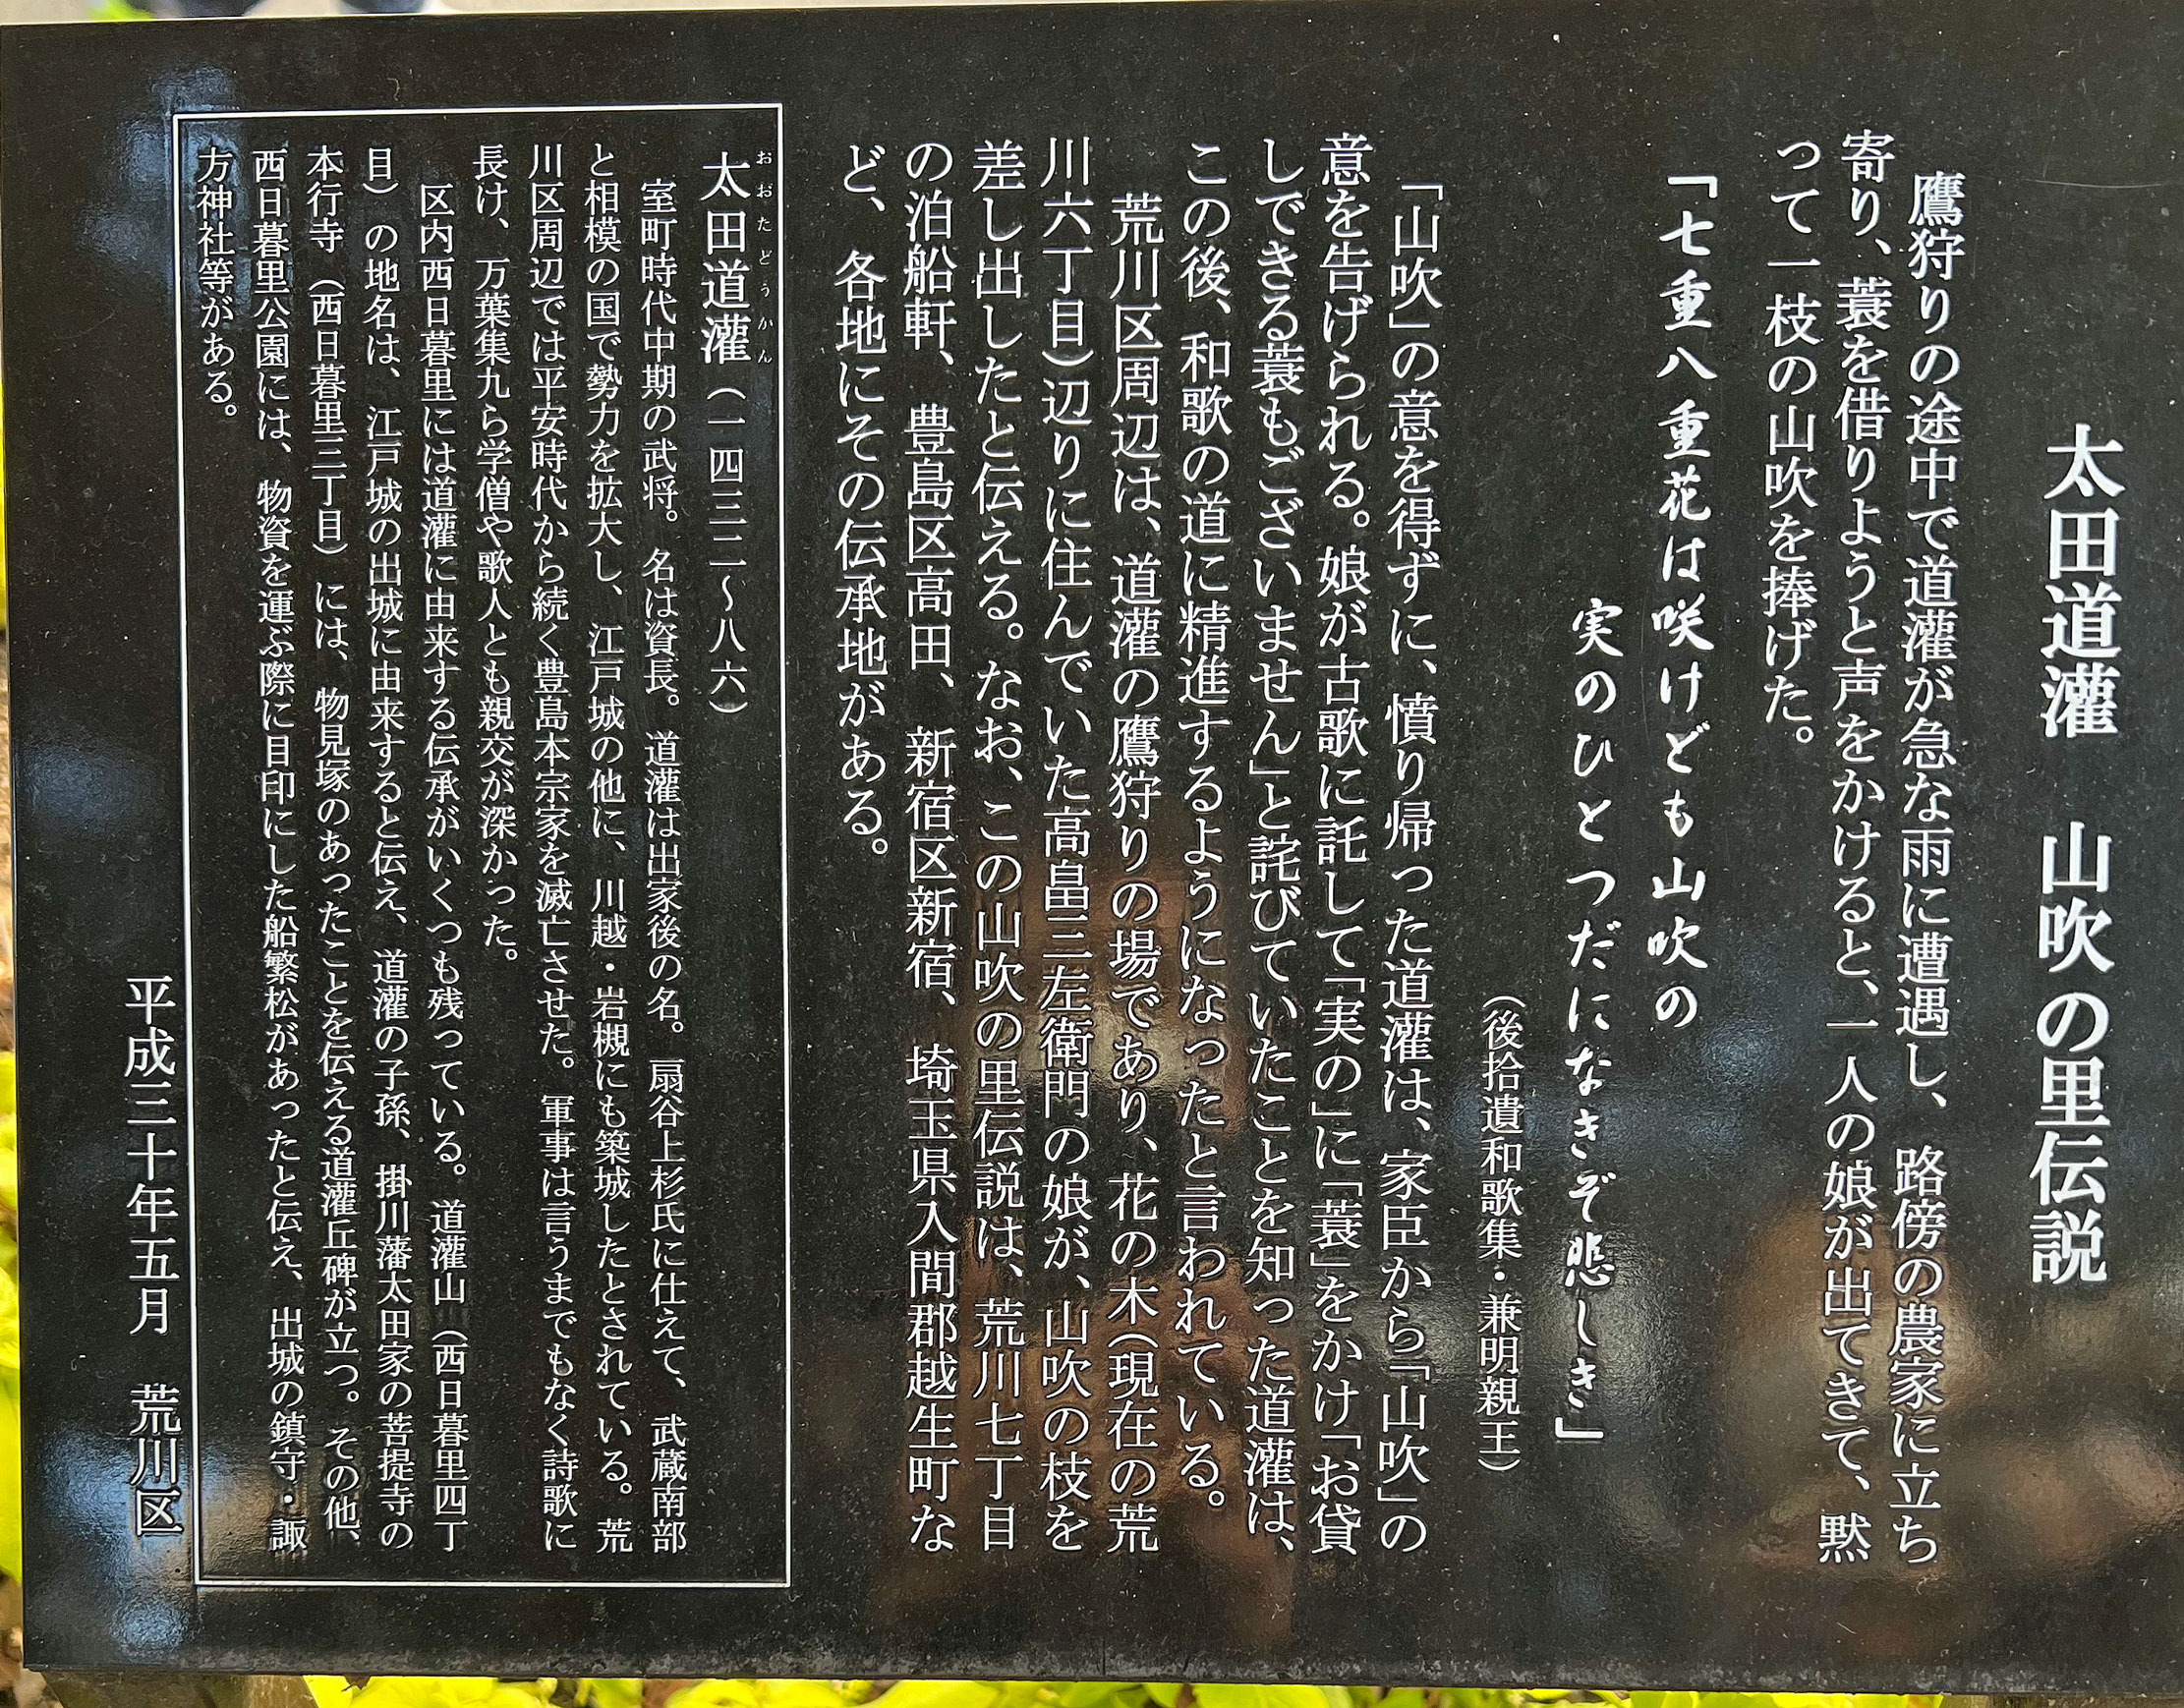 太田道灌　山吹の里伝説
鷹狩りの途中で道灌が急な雨に遭遇し、路傍の農家に立ち
寄り、蓑を借りようと声をかけると、一人の娘が出てきて、黙
って一枝の山吹を捧げた。
「七重八重花は咲けども山吹の
実のひとつだになきぞ悲しき」
（後拾遺和歌集・兼明親王）
「山吹」の意を得ずに、憤り帰った道灌は、家臣から「山吹」の
意を告げられる。娘が古歌に託して「実の」に「蓑」をかけ「お貸
しできる蓑もございません」と詫びていたことを知った道灌は、
この後、和歌の道に精進するようになったと言われている。
荒川区周辺は、道灌の鷹狩りの場であり、花の木（現在の荒
川六丁目）辺りに住んでいた高畠三左衛門の娘が、山吹の枝を
差し出したと伝える。なお、この山吹の里伝説は、荒川七丁目
の泊船軒、豊島区高田、新宿区新宿、埼玉県入間郡越生町な
ど、各地にその伝承地がある。
おおたどうかん
太田道灌（一四三二～八六）
室町時代中期の武将。名は資長。道灌は出家後の名。扇谷上杉氏に仕えて、武蔵南部
と相模の国で勢力を拡大し、江戸城の他に、川越・岩槻にも築城したとされている。荒
川区周辺では平安時代から続く豊島本宗家を滅亡させた。軍事は言うまでもなく詩歌に
長け、万葉集九ら学僧や歌人とも親交が深かった。
区内西日暮里には道灌に由来する伝承がいくつも残っている。道灌山（西日暮里四丁
目）の地名は、江戸城の出城に由来すると伝え、道灌の子孫、掛川藩太田家の菩提寺の
本行寺（西日暮里三丁目）には、物見塚のあったことを伝える道灌丘碑が立つ。その他、
西日暮里公園には、物資を運ぶ際に目印にした船繁松があったと伝え、出城の鎮守・諏
方神社等がある。
平成三十年五月　荒川区